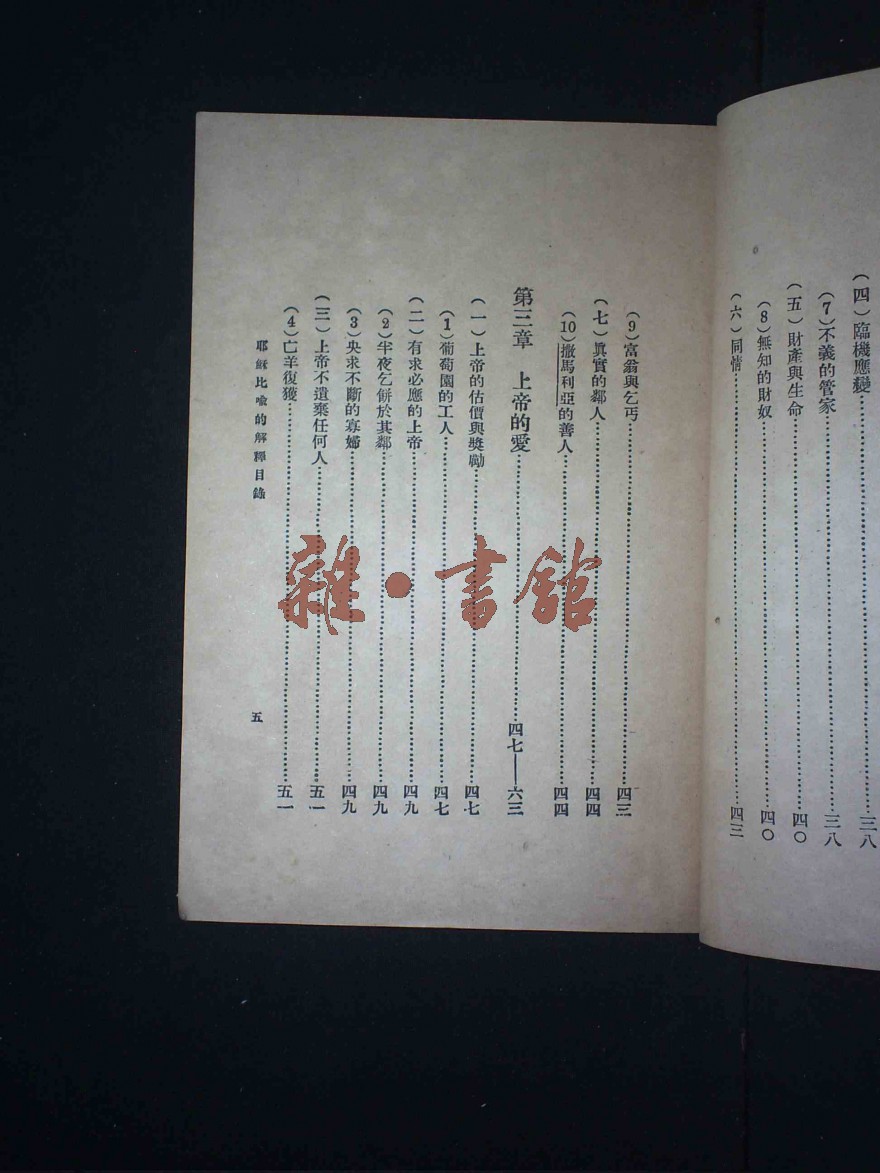 (四)臨機應變……三八
(7)不義的管家……三八
(五)財產與生命……四〇
(8)無知的財奴……四〇
(六)同情……四三
(9)富翁與乞丐……四三
(七)眞實的鄰人……四四
(10)撒馬利亞的善人……四四
第三章 上帝的愛……四七——六三
(一)上帝的估價與獎勵……四七
(1)葡萄園的工人……四七
(二)有求必應的上帝……四九
(2)半夜乞餅於其鄰……四九
(3)央求不斷的寡婦……四九
(三)上帝不遺棄任何人……五一
(4)亡羊復獲……五一
耶穌比喻的解釋目錄
五
雜·書館